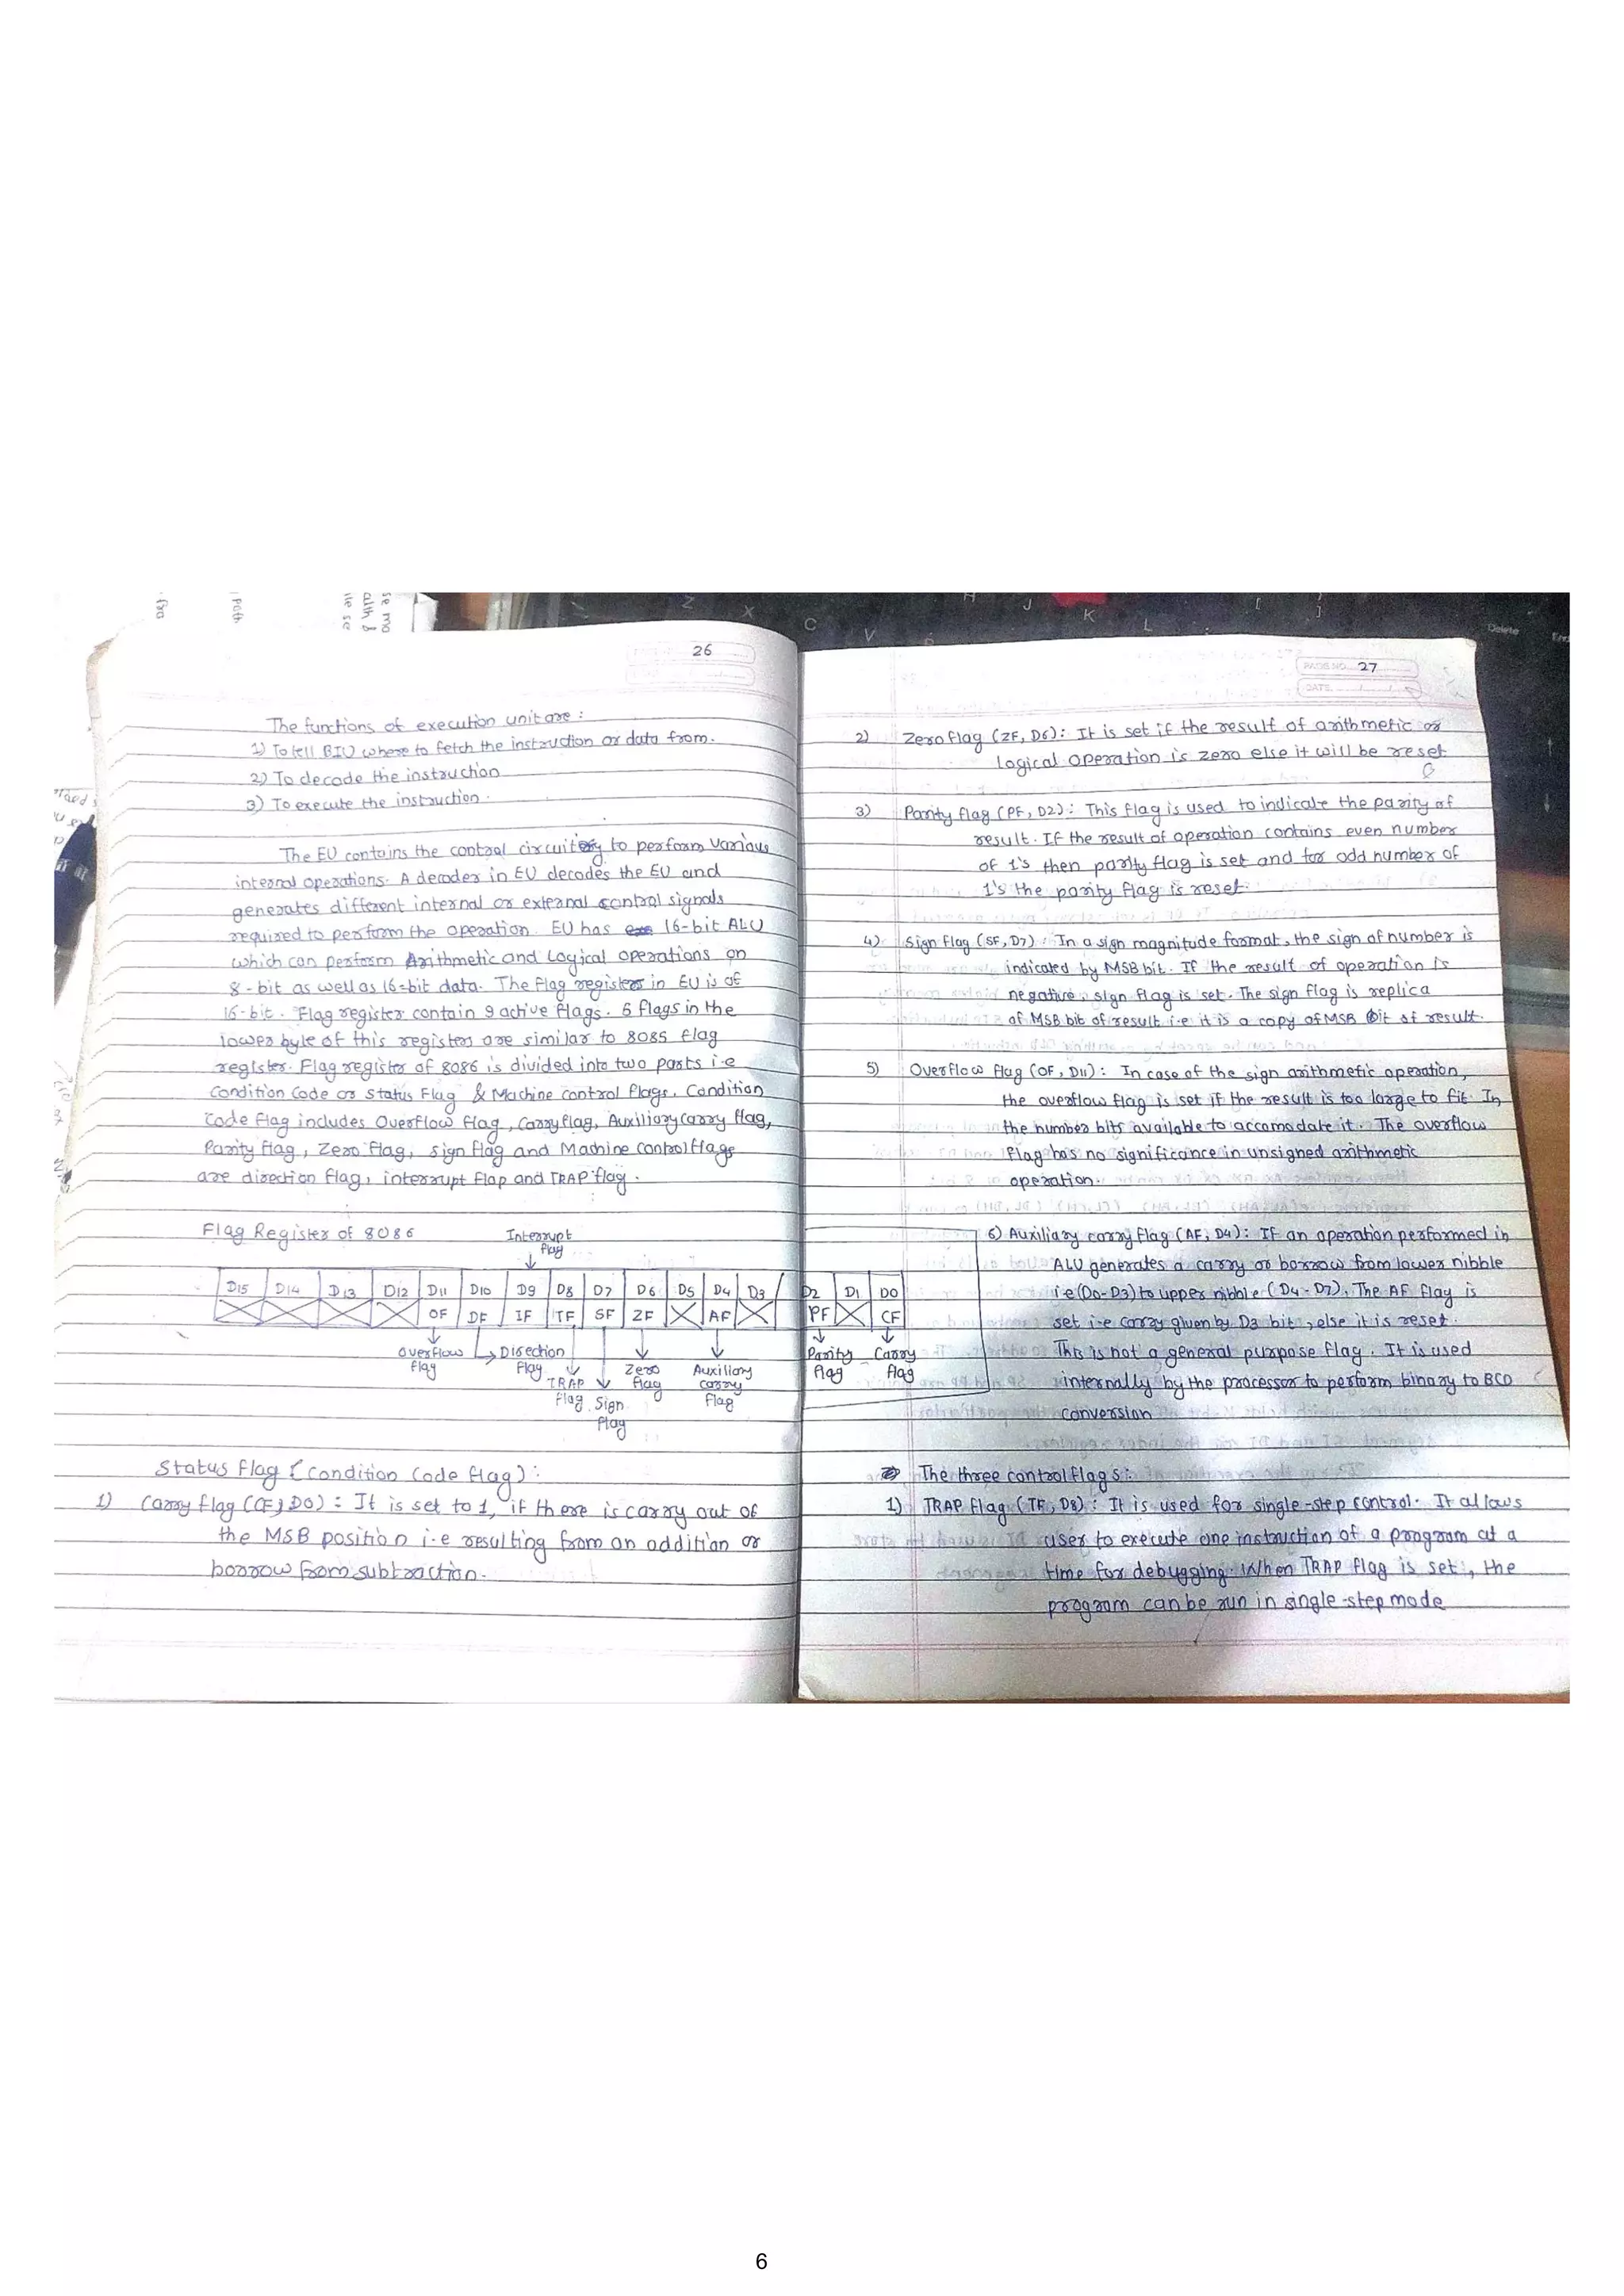 26
The functions of execution unit are :
1) To tell BIU where to fetch the instruction or data from.
2) To decode the instruction
3) To execute the instruction.
The EU contains the control circuitry to perform various
internal operations. A decoder in EU decodes the EU and
generates different internal or external control signals
required to perform the operation. EU has 16-bit ALU
which can perform Arithmetic and Logical operations on
8-bit as well as 16-bit data. The Flag register in EU is of
16-bit. Flag register contain 9 active flags. 6 flags in the
lower byte of this register are similar to 8085 flag
register. Flag register of 8086 is divided into two parts i.e
Condition Code or Status Flag & Machine control flags. Condition
Code flag includes Overflow flag, Carry flag, Auxiliary carry flag,
Parity flag, Zero flag, sign flag and Machine control flags
are direction flag, interrupt flap and TRAP flag.
Flag Register of 8086
Interrupt
flag
D15 D14 D13 D12 D11 D10 D9 D8 D7 D6 D5 D4 D3 D2 D1 D0
OF DF IF TF SF ZF AF PF CF
Overflow
flag
Direction
flag
TRAP
flag
Sign
flag
Zero
flag
Auxiliary
carry
flag
Parity
flag
Carry
flag
Status Flag (Condition Code flag) :
1) Carry flag (CF, D0) : It is set to 1, if there is carry out of
the MSB position i.e resulting from an addition or
borrow from subtraction.
PAGE NO. 27
DATE
2) Zero flag (ZF, D6): It is set if the result of arithmetic or
logical operation is zero else it will be reset
3) Parity flag (PF, D2): This flag is used to indicate the parity of
result. If the result of operation contains even number
of 1's then parity flag is set and for odd number of
1's the parity flag is reset.
4) Sign flag (SF, D7) : In a sign magnitude format, the sign of number is
indicated by MSB bit. If the result of operation is
negative, sign flag is set. The sign flag is replica
of MSB bit of result i.e it is a copy of MSB bit of result.
5) Overflow flag (OF, D11) : In case of the sign arithmetic operation,
the overflow flag is set if the result is too large to fit In
the number bits available to accomodate it. The overflow
flag has no significance in unsigned arithmetic
operation.
6) Auxiliary carry flag (AF, D4): If an operation performed in
ALU generates a carry or borrow from lower nibble
i.e (D0-D3) to upper nibble (D4-D7), The AF flag is
set i.e carry given by D3 bit, else it is reset.
This is not a general purpose flag. It is used
internally by the processor to perform binary to BCD
Conversion
The three control flags :
1) TRAP flag (TF, D8) : It is used for single-step control. It allows
user to execute one instruction of a program at a
time for debugging. When TRAP flag is set, the
program can be run in single-step mode
6